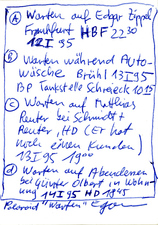 (A) Warten auf Edgar Zippel
Frankfurt HBF 22 30
12 I 95
(B) Warten während AUTO-
wäsche Brühl 13 I 95
BP Tankstelle 10 15
(C) Warten auf Mathias
Reuter bei Schmidt +
Reuter, HD (Er hat
noch einen Kunden)
13 I 95 19 00
(D) Warten auf Abendessen
bei Günter Olbert in Wohn
ung 14 I 95 HD 19 45
Polaroid "Warten"